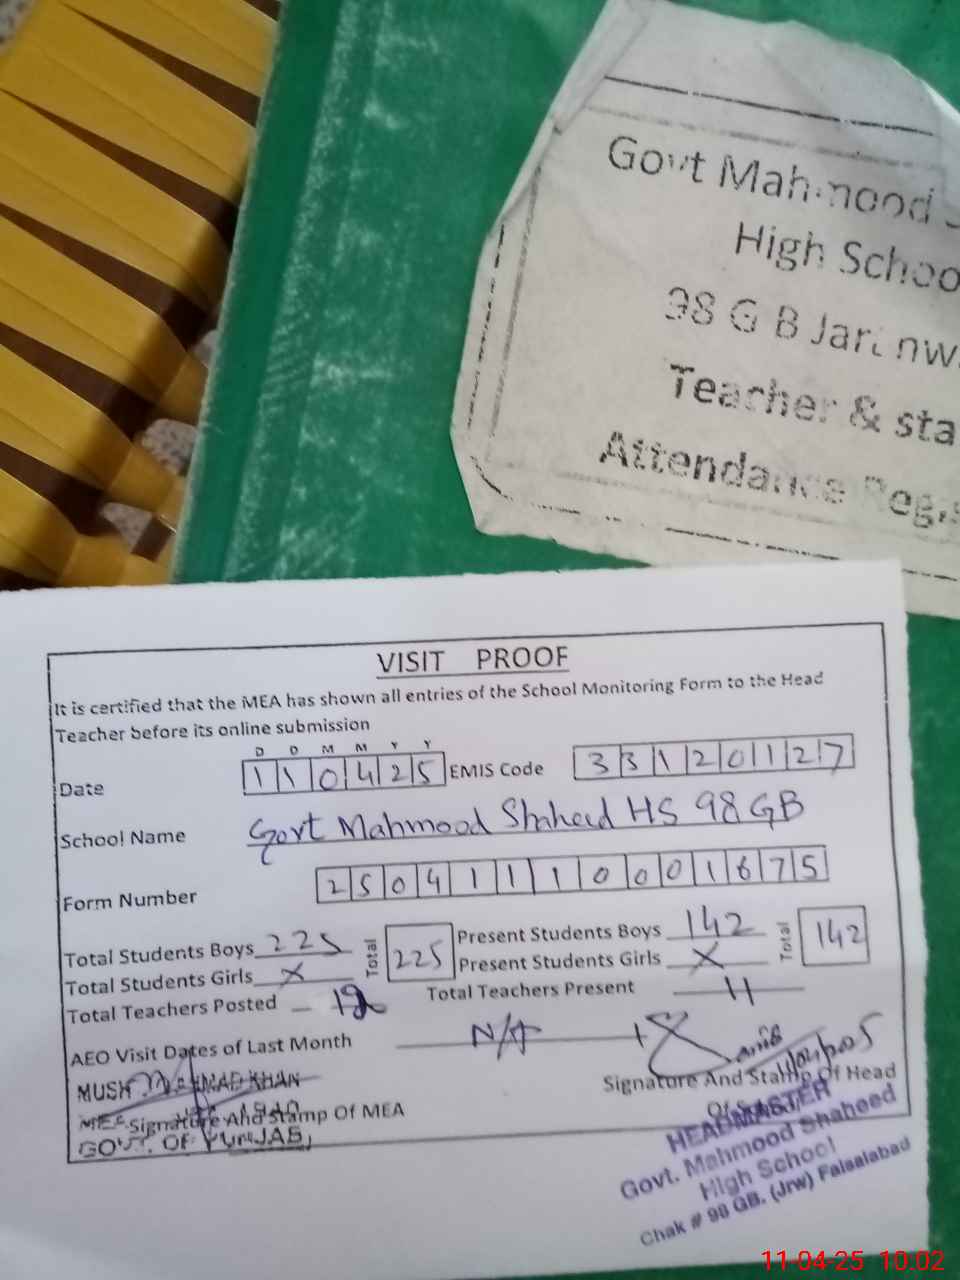 Govt Mahmood
High Schoo
98 G B Jaranw
Teacher & sta
Attendance Reg
VISIT PROOF
It is certified that the MEA has shown all entries of the School Monitoring Form to the Head
Teacher before its online submission
D D M M Y Y
Date 1 1 0 4 2 5 EMIS Code 3 3 1 2 0 1 2 7
School Name Govt Mahmood Shaheed HS 98 GB
Form Number 2 5 0 4 1 1 1 0 0 0 1 6 7 5
Total Students Boys 225 Total 225 Present Students Boys 142 Total 142
Total Students Girls X Present Students Girls X
Total Teachers Posted 12 Total Teachers Present 11
AEO Visit Dates of Last Month N/A
Signature And Stamp Of Head
Of School
KHAN
Signature And Stamp Of MEA
GOVT. OF PUNJAB
HEADMASTER
Govt. Mahmood Shaheed
High School
Chak # 98 GB. (Jrw) Faisalabad
11-04-25 10.02